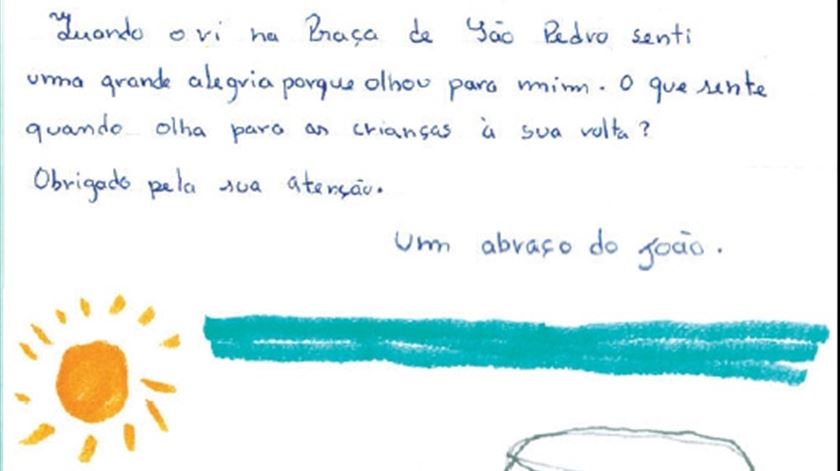 Quando o vi na Praça de São Pedro senti
uma grande alegria porque olhou para mim. O que sente
quando olha para as crianças à sua volta?
Obrigado pela sua atenção.
Um abraço do João.